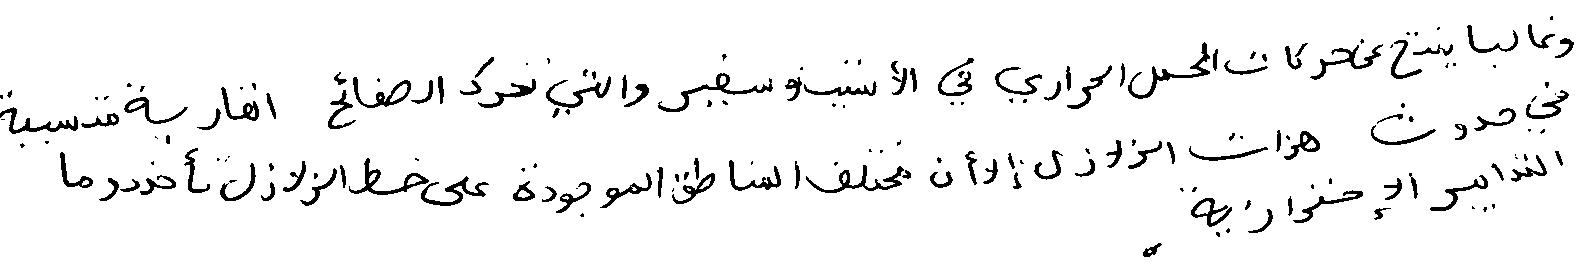 وغالبا ينتج عن حركات الحمل الحراري في الأستينوسفير والتي تحرك الصفائح القارية متسببة
في حدوث هزات الزلازل إلا أن مختلف المناطق الموجودة على خط الزلازل تأخذ دوما
التدابير الإحترازية.